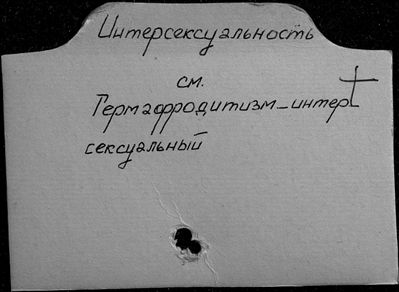 Интерсексуальность
см.
Гермафродитизм-интер
сексуальный